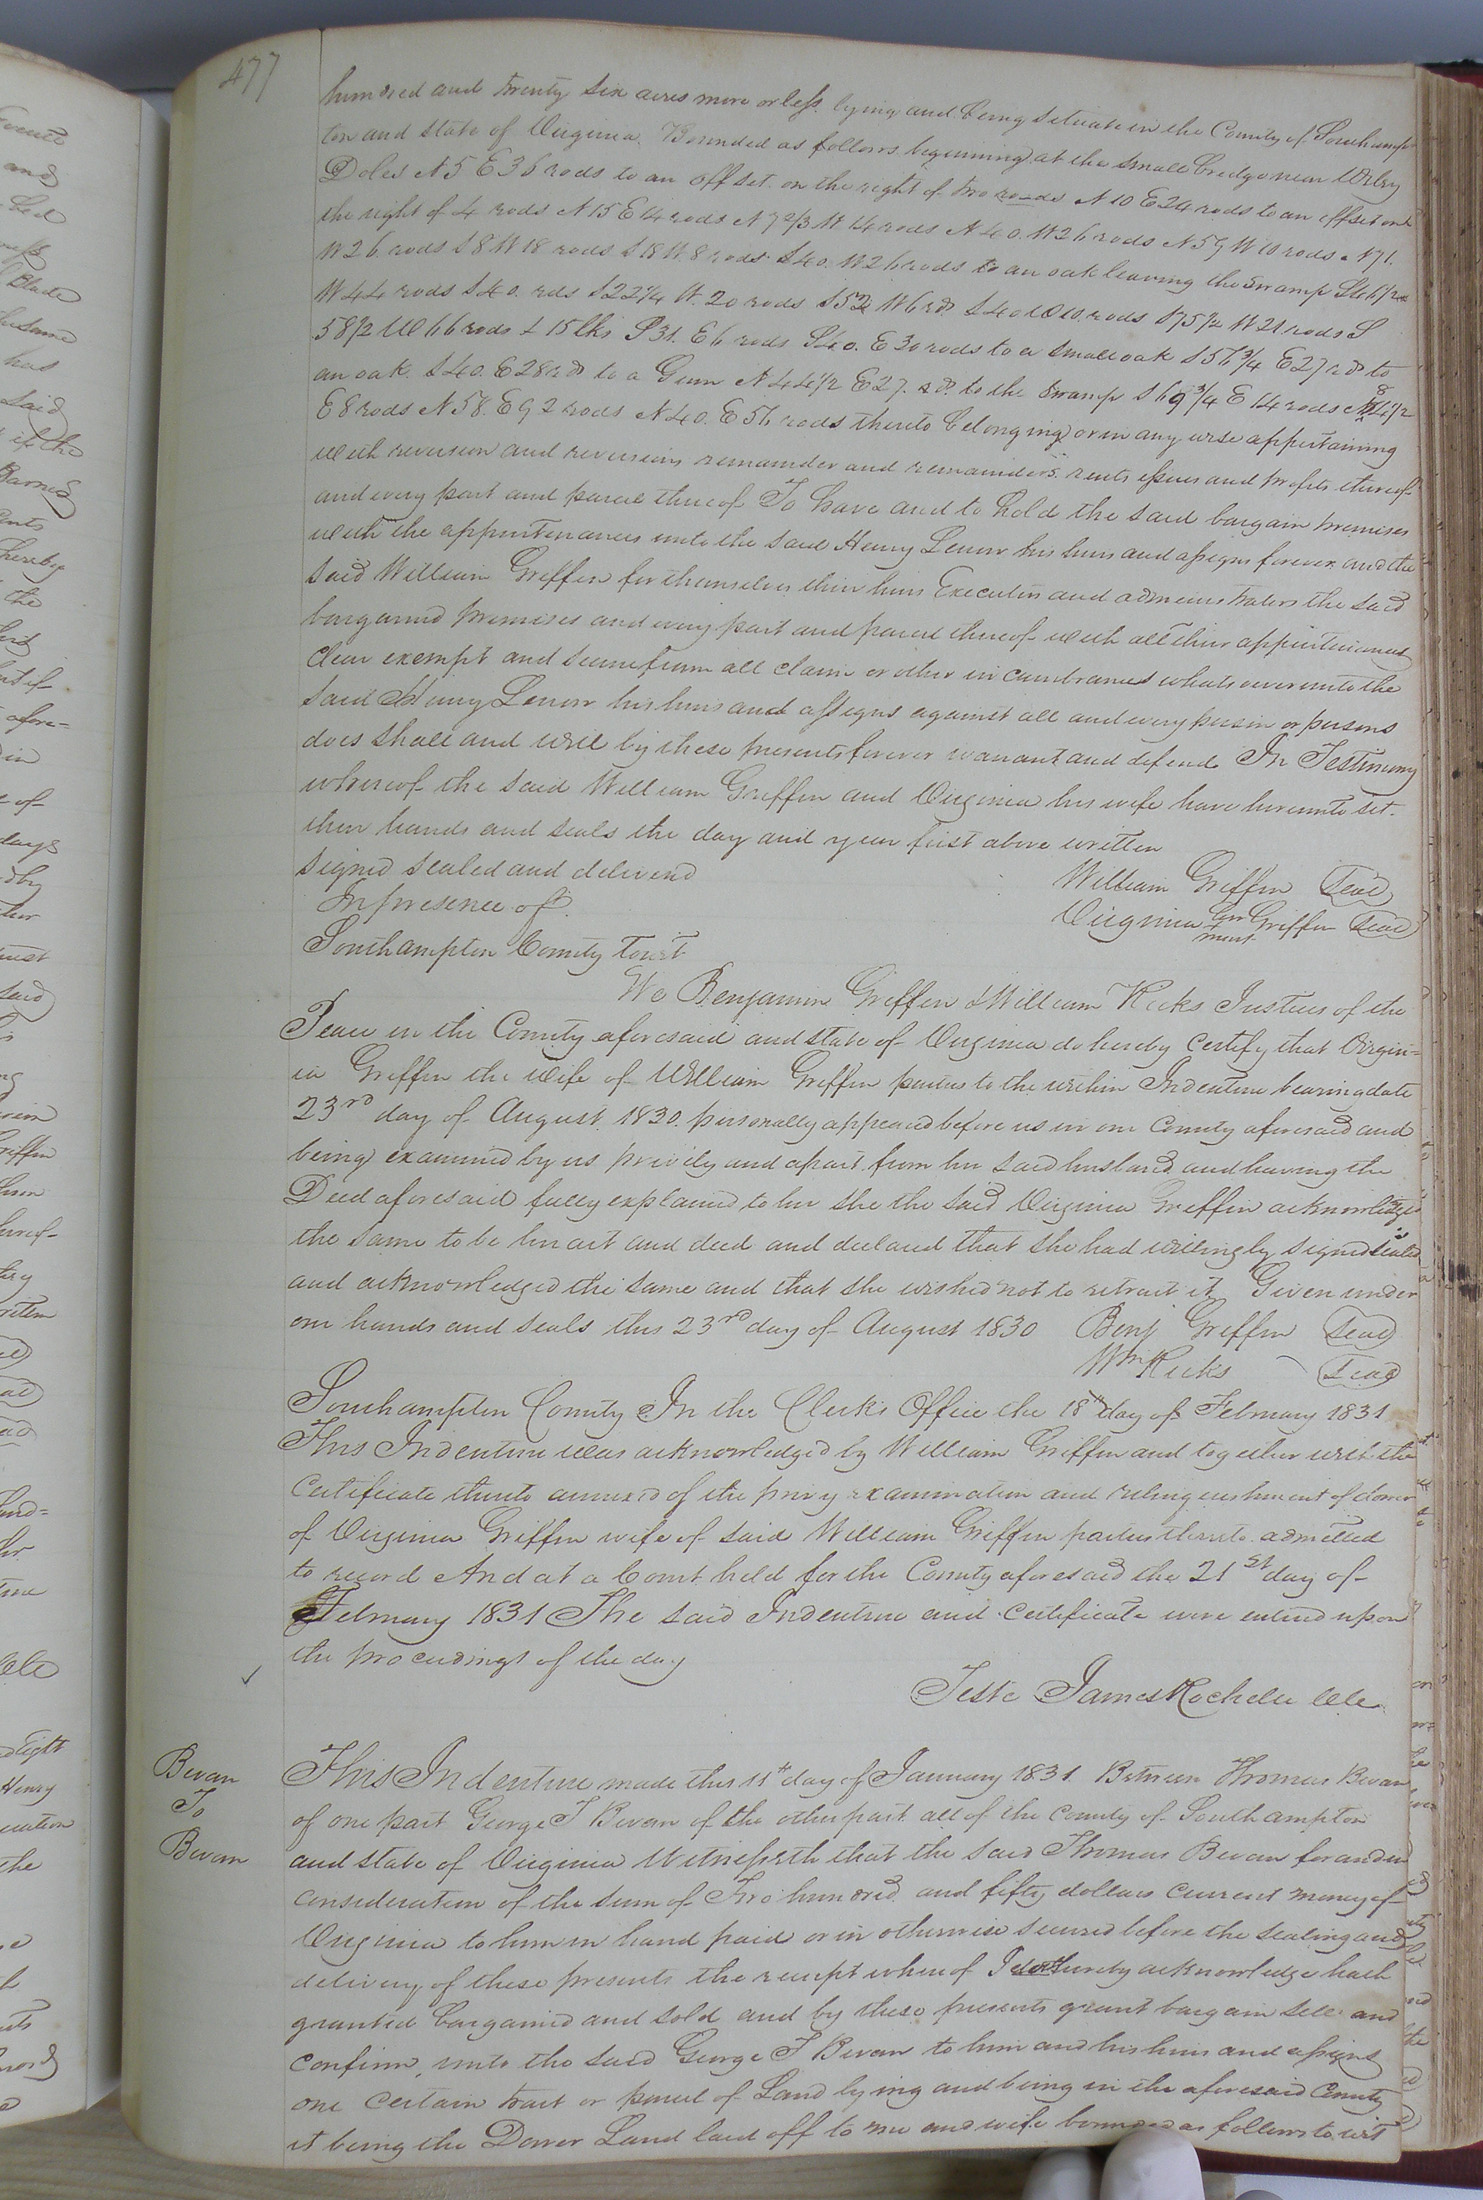 477
hundred and twenty six acres more or less lying and being situate in the County of Southamp
ton and state of Virginia Bounded as follows beginning at the small bridge near Wiley
Doles N 5 E 36 rods to an offset on the right of two roads N 10 E 24 rods to an offset on
the right of 4 rods N 15 E 14 rods N 7 2/3 W 14 rods N 40 W 26 rods N 59 W 10 rods N 71
W 26 rods S 8 W 18 rods S 18 W 8 rods S 40 W 26 rods to an oak leaving the Swamp S 46 1/2
W 44 rods S 40 rds S 22 1/4 W 20 rods S 52 W 6 rd S 40 W 10 rods S 75 1/2 W 21 rods S
58 1/2 W 66 rods & 15 lks S 31 E 6 rods S 40 E 30 rods to a small oak S 56 3/4 E 27 rds to
an oak S 40 E 28 rds to a Gum N 44 1/2 E 27 rds to the Swamp S 69 3/4 E 14 rods N 84 1/2
E 8 rods N 58 E 92 rods N 40 E 56 rods thereto belonging or in any wise appertaining
with reversion and reversions remainder and remainders rents issues and profits thereof
and every part and parcel thereof To have and to hold the said bargain premises
with the appurtenances unto the said Henry Lenow his heirs and assigns forever and the
said William Griffin for themselves their heirs Executors and administrators the said
bargained premises and every part and parcel thereof with all their appurtenances
clear exempt and secure from all claim or other in cumbrances whatsoever unto the
said Henry Lenow his heirs and assigns against all and every person or persons
does shall and will by these presents forever warrant and defend In Testimony
whereof the said William Griffin and Virginia his wife have hereunto set
their hands and seals the day and year first above written
signed sealed and delivered
William Griffin Seal
In presence of
Virginia Griffin Seal
Southampton County Court
We Benjamin Griffin & William Ricks Justices of the
Peace in the County aforesaid and state of Virginia do hereby certify that Virgin=
ia Griffin the wife of William Griffin parties to the within Indenture bearing date
23rd day of August 1830 personally appeared before us in our County aforesaid and
being examined by us privily and apart from her said husband and having the
Deed aforesaid fully explained to her she the said Virginia Griffin acknowledged
the same to be her act and deed and declared that she had willingly signed sealed
and acknowledged the same and that she wished not to retract it Given under
our hands and seals this 23rd day of August 1830 Benj Griffin Seal
Wm Ricks Seal
Southampton County In the Clerks Office the 18th day of February 1831
This Indenture was acknowledged by William Griffin and together with the
certificate thereto annexed of the privy examination and relinquishment of dower
of Virginia Griffin wife of said William Griffin parties thereto admitted
to record And at a Court held for the County aforesaid the 21st day of
February 1831 The said Indenture and certificate were entered upon
the proceedings of the day
Teste James Rochelle Clk
Bevan
To
Bevan
This Indenture made this 11th day of January 1831 Between Thomas Bevan
of one part George T Bevan of the other part all of the County of Southampton
and state of Virginia Witnesseth that the said Thomas Bevan for and in
consideration of the sum of Two hundred and fifty dollars current money of
Virginia to him in hand paid or in otherwise secured before the sealing and
delivery of these presents the receipt whereof I do hereby acknowledge hath
granted bargained and sold and by these presents grant bargain sell and
confirm unto the said George T Bevan to him and his heirs and assigns
one certain tract or parcel of Land lying and being in the aforesaid County
it being the Dower Land laid off to me and wife bounded as follows to wit